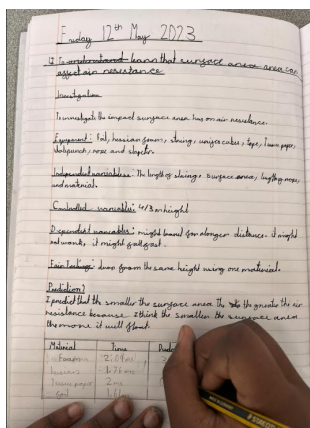 Friday 12th May 2023
LI To understand learn that surface area can
affect air resistance
Investigation
To investigate the impact surface area has on air resistance.
Equipment: Foil, hessian foam, string, unifix cubes, tape, tissue paper,
holepunch, rope and
Independent variables: The length of string, surface area, length of rope,
and material.
Controlled variable: height
Dependent variable: might travel for a longer distance. it might
not work, it might fall fast.
Fair testing: drop from the same height using one material.
Prediction:
I predict that the smaller the surface area the greater the air
resistance because I think the smaller the surface area
the more it will float.
Material Time
Foam 2.04ms
1.76ms
Tissue paper 2 ms
foil